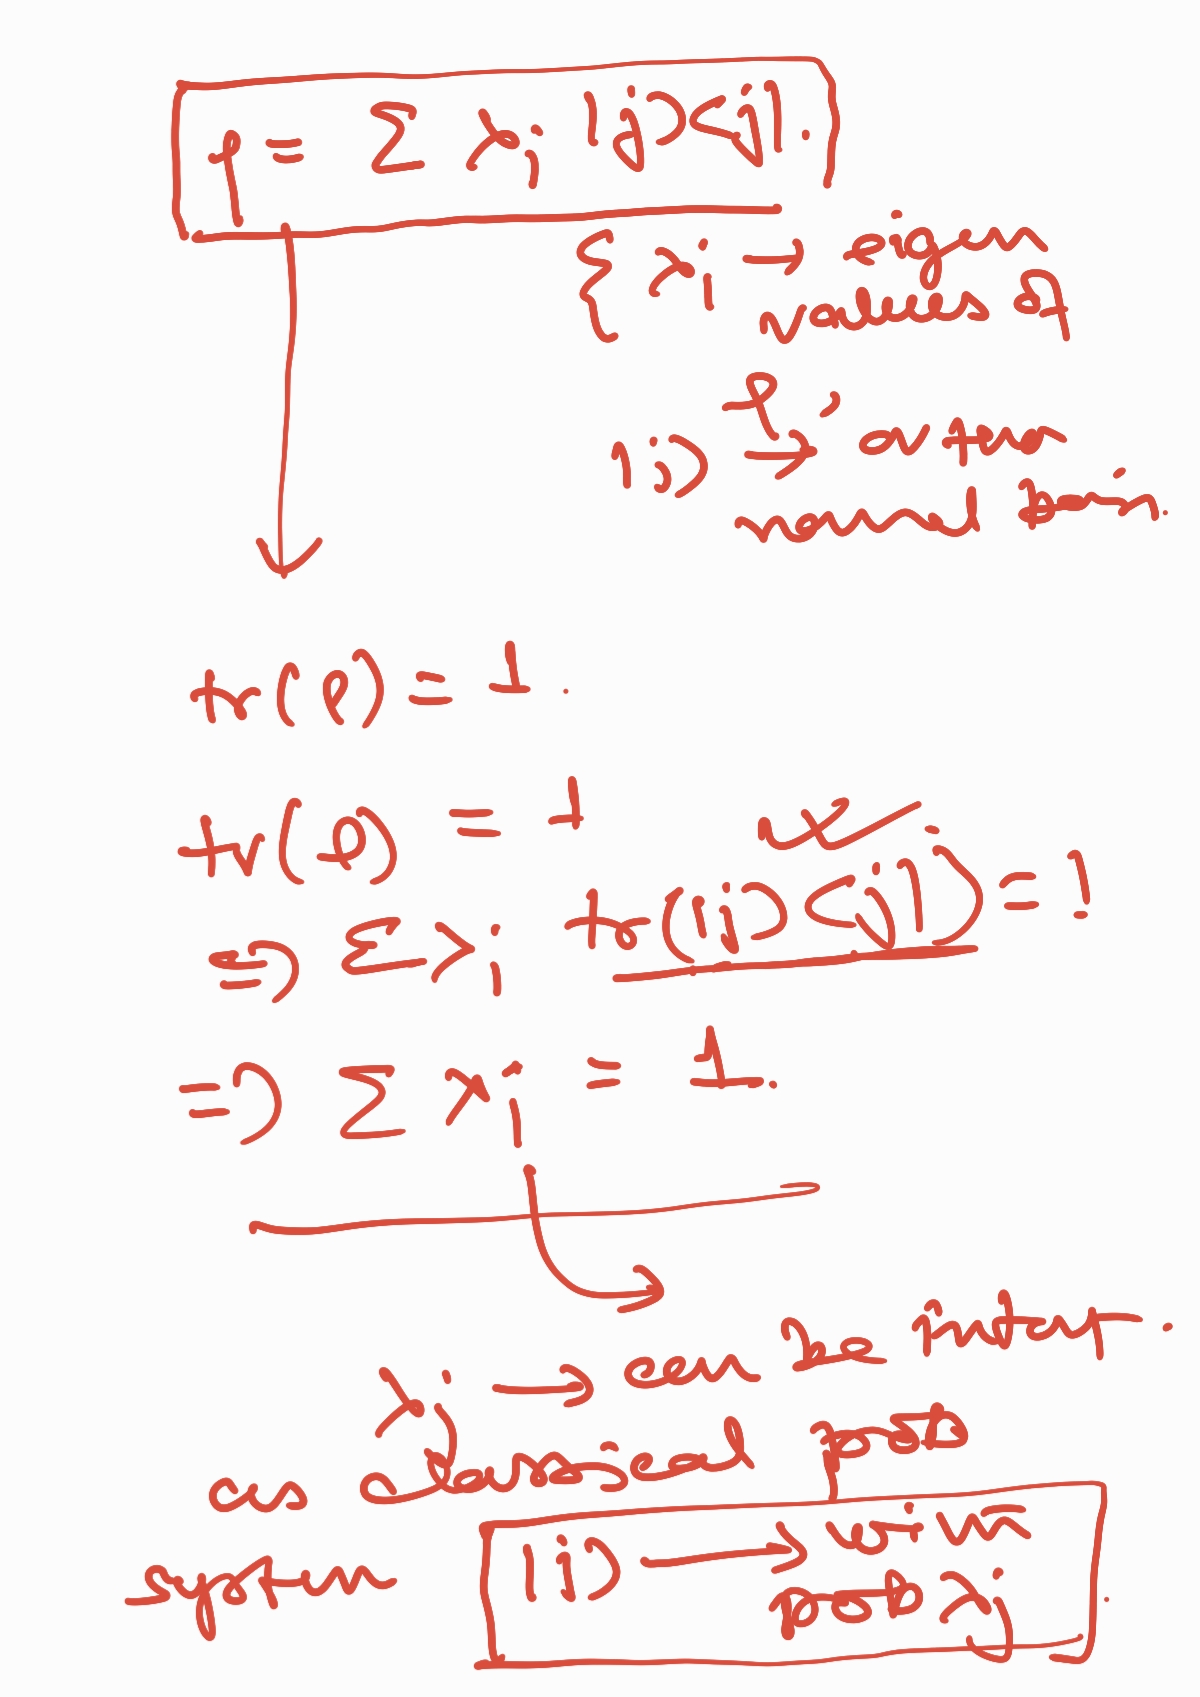 ρ = Σ λj |j><j|.
{ λj → eigen
values of
ρ,
|j> → ortho
normal basis.
tr(ρ) = 1.
tr(ρ) = 1
=> Σλj tr(|j><j|) = 1
=> Σ λj = 1.
λj → can be interp.
as classical prob
system |j> → with
prob λj.